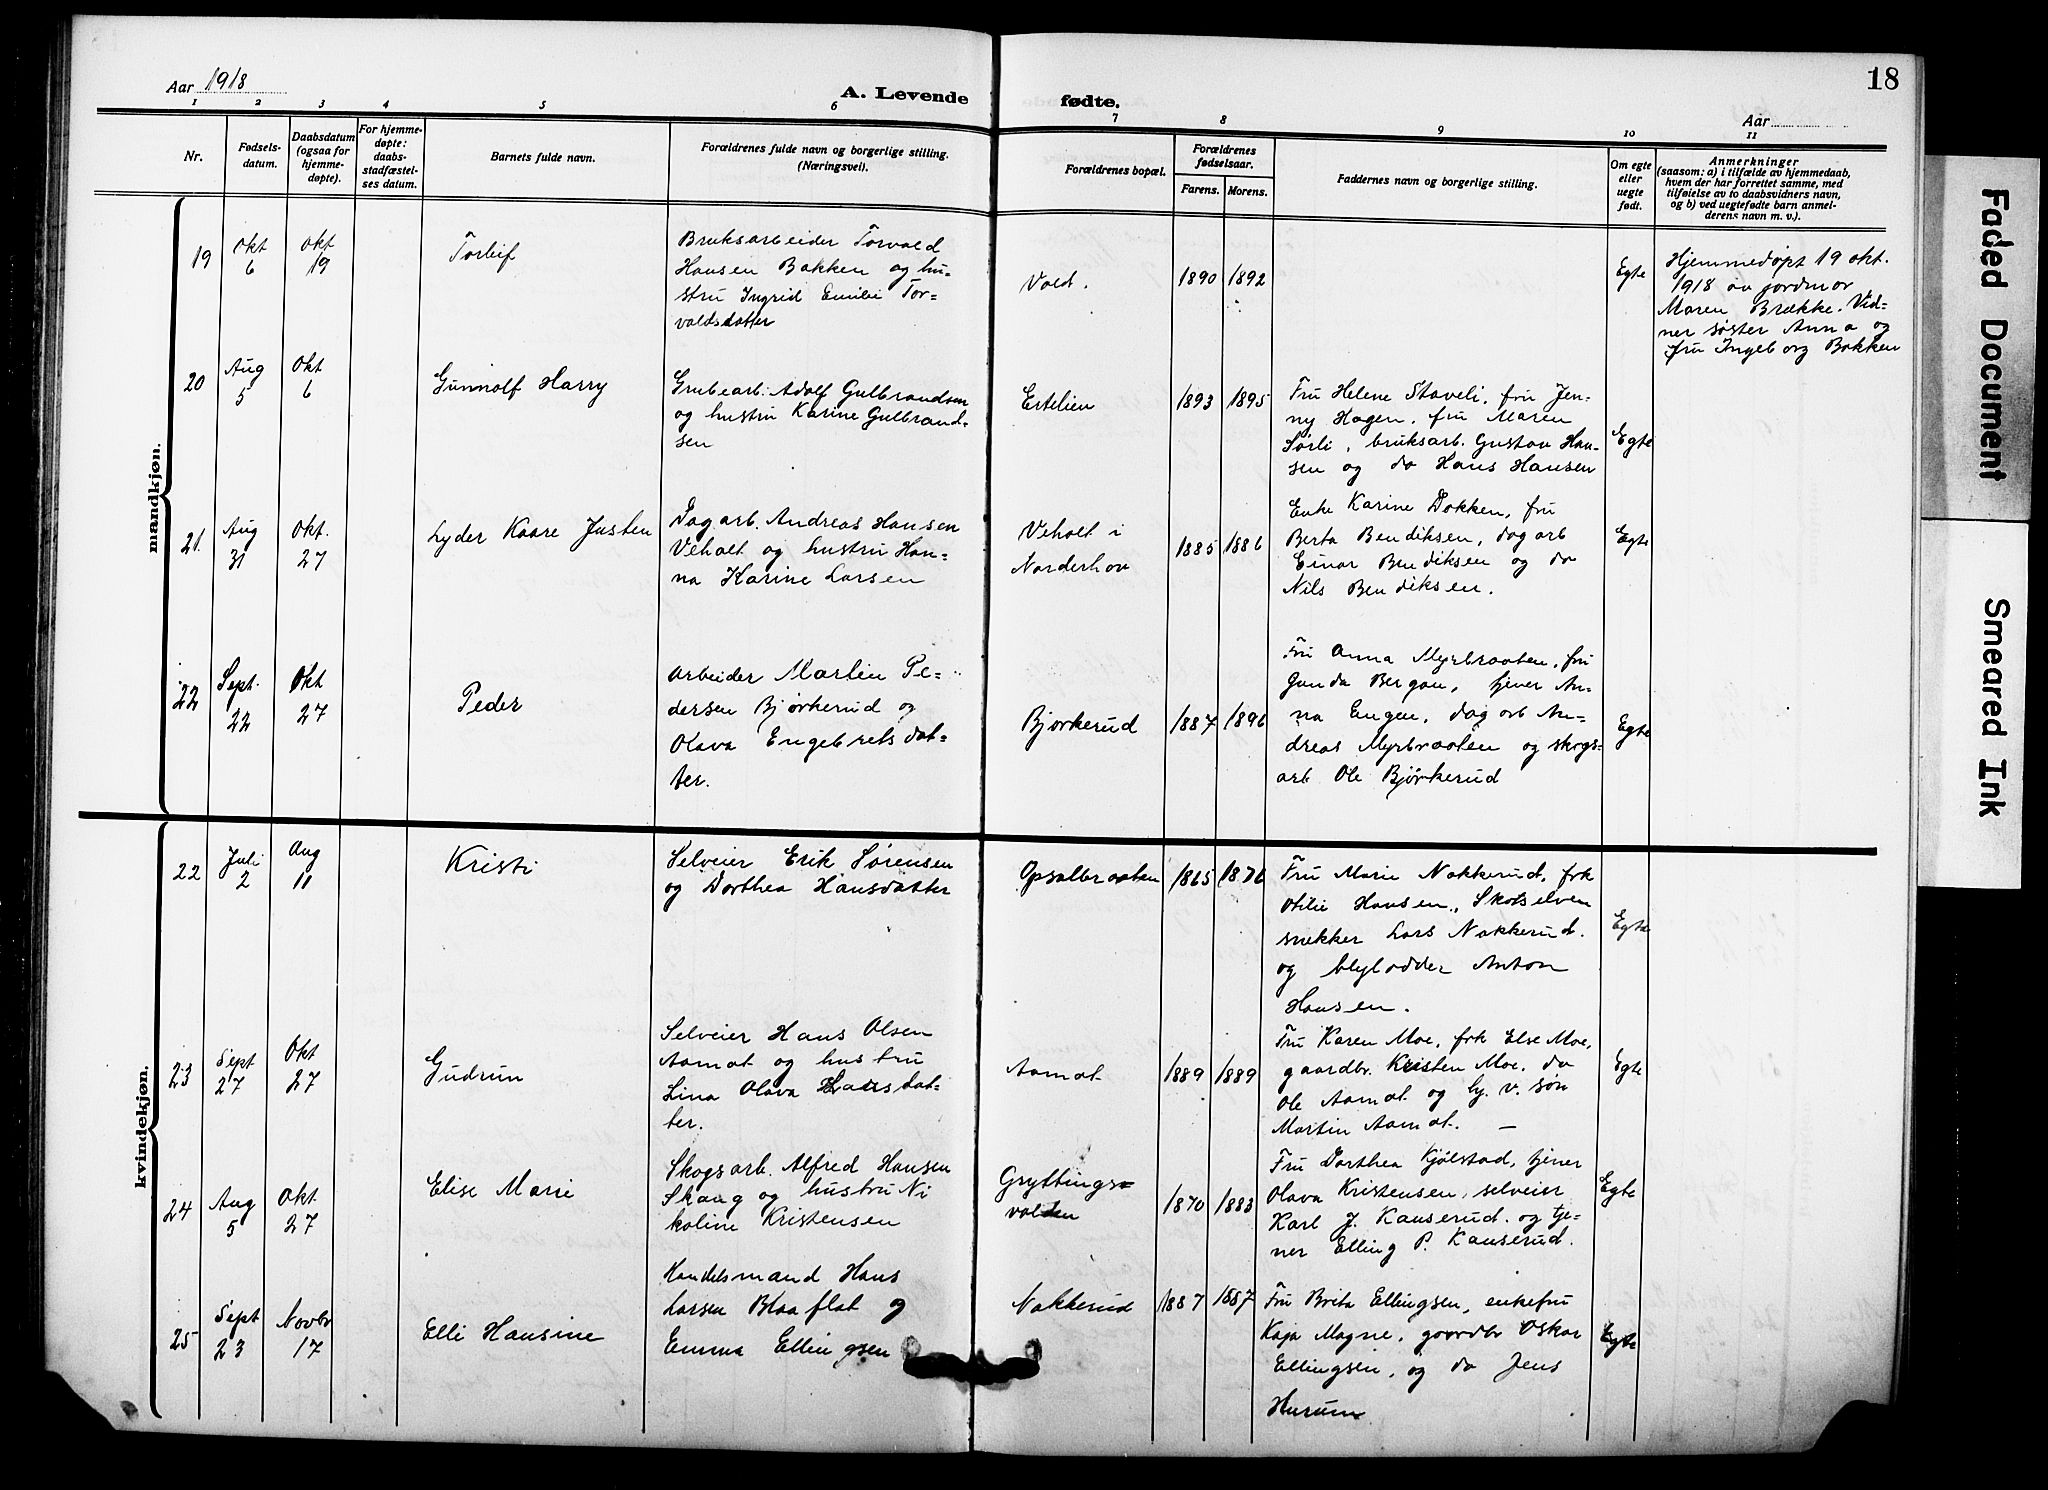 18
Aar 1918
A. Levende fødte.
Aar
1 2 3 4 5 6 7 8 9 10 11
Nr.
Fødsels-
datum.
Daabsdatum
(ogsaa for
hjemme-
døpte).
For hjemme-
døpte:
daabs-
stadfæstel-
ses datum.
Barnets fulde navn.
Forældrenes fulde navn og borgerlige stilling.
(Næringsvei).
Forældrenes bopæl.
Forældrenes
fødselsaar.
Farens. Morens.
Faddernes navn og borgerlige stilling.
Om egte
eller
uegte
født.
Anmerkninger
(saasom: a) i tilfælde av hjemmedaab,
hvem der har forrettet samme, med
tilføielse av to daabsvidners navn,
og b) ved uegtefødte barn anmel-
derens navn m. v.).
mandkjøn.
19
Okt
6
Okt
19
Torleif
Bruksarbeider Torvald
Hansen Bakken og hu-
stru Ingrid Emilie Tor-
valdsdatter
Vold.
1890 1892
Egte
Hjemmedøpt 19 okt.
1918 av jordmor
Maren Brække. Vid-
ner søster Anna og
fru Ingeborg Bakken
20
Aug
5
Okt
6
Gunnolf Harry
Grubearb. Adolf Gulbrandsen
og hustru Karine Gulbrand-
sen
Ertelien
1893 1895
Fru Helene Staveli, fru Jen-
ny Hagen, fru Maren
Sørli, bruksarb. Gustav Han-
sen og do Hans Hansen
Egte
21.
Aug
31
Okt.
27
Lyder Kaare Justen
Dagarb. Andreas Hansen
Veholt og hustru Han-
na Karine Larsen
Veholt i
Norderhov
1885 1886
Enke Karine Dokken, fru
Berta Bendiksen, dagarb
Einar Bendiksen og do
Nils Bendiksen.
Egte
22
Sept.
22
Okt
27
Peder
Arbeider Martin Pe-
dersen Bjørkerud og
Olava Engebretsdat-
ter.
Bjørkerud
1887 1896
Fru Anna Myrbraaten, fru
Gunda Bergan, tjener An-
na Engen, dagarb An-
dreas Myrbraaten og skogs-
arb Ole Bjørkerud
Egte
kvindekjøn.
22
Juli
2
Aug
11
Kristi
Selveier Erik Sørensen
og Dorthea Hansdatter
Opsalbraaten
1865 1876
Fru Marie Nakkerud, frk
Otilie Hansen, Skotselven
snekker Lars Nakkerud.
og blylodder Anton
Hansen.
Egte
23
Sept
27
Okt
27
Gudrun
Selveier Hans Olsen
Aamot og hustru
Lina Olava Hansdat-
ter.
Aamot
1889 1889
Fru Karen Moe, frk Else Moe,
gaardbr. Kristen Moe, do
Ole Aamot og hj. v. søn
Martin Aamot. —
Egte
24
Aug
5
Okt
27
Elise Marie
Skogsarb. Alfred Hansen
Skaug og hustru Ni
koline Kristensen
Gryttings-
volden
1870 1883
Fru Dorthea Kjølstad, tjener
Olava Kristensen, selveier
Karl J. Kauserud. og tje-
ner Elling P. Kauserud.
Egte
25
Sept
23
Novbr
17
Elli Hansine
Handelsmand Hans
Larsen Blaaflat og
Emma Ellingsen
Nakkerud
1887 1887
Fru Brita Ellingsen, enkefru
Kaja Magne, gaardbr Oskar
Ellingsen, og do Jens
Hurum
Egte
Faded Document
Smeared Ink